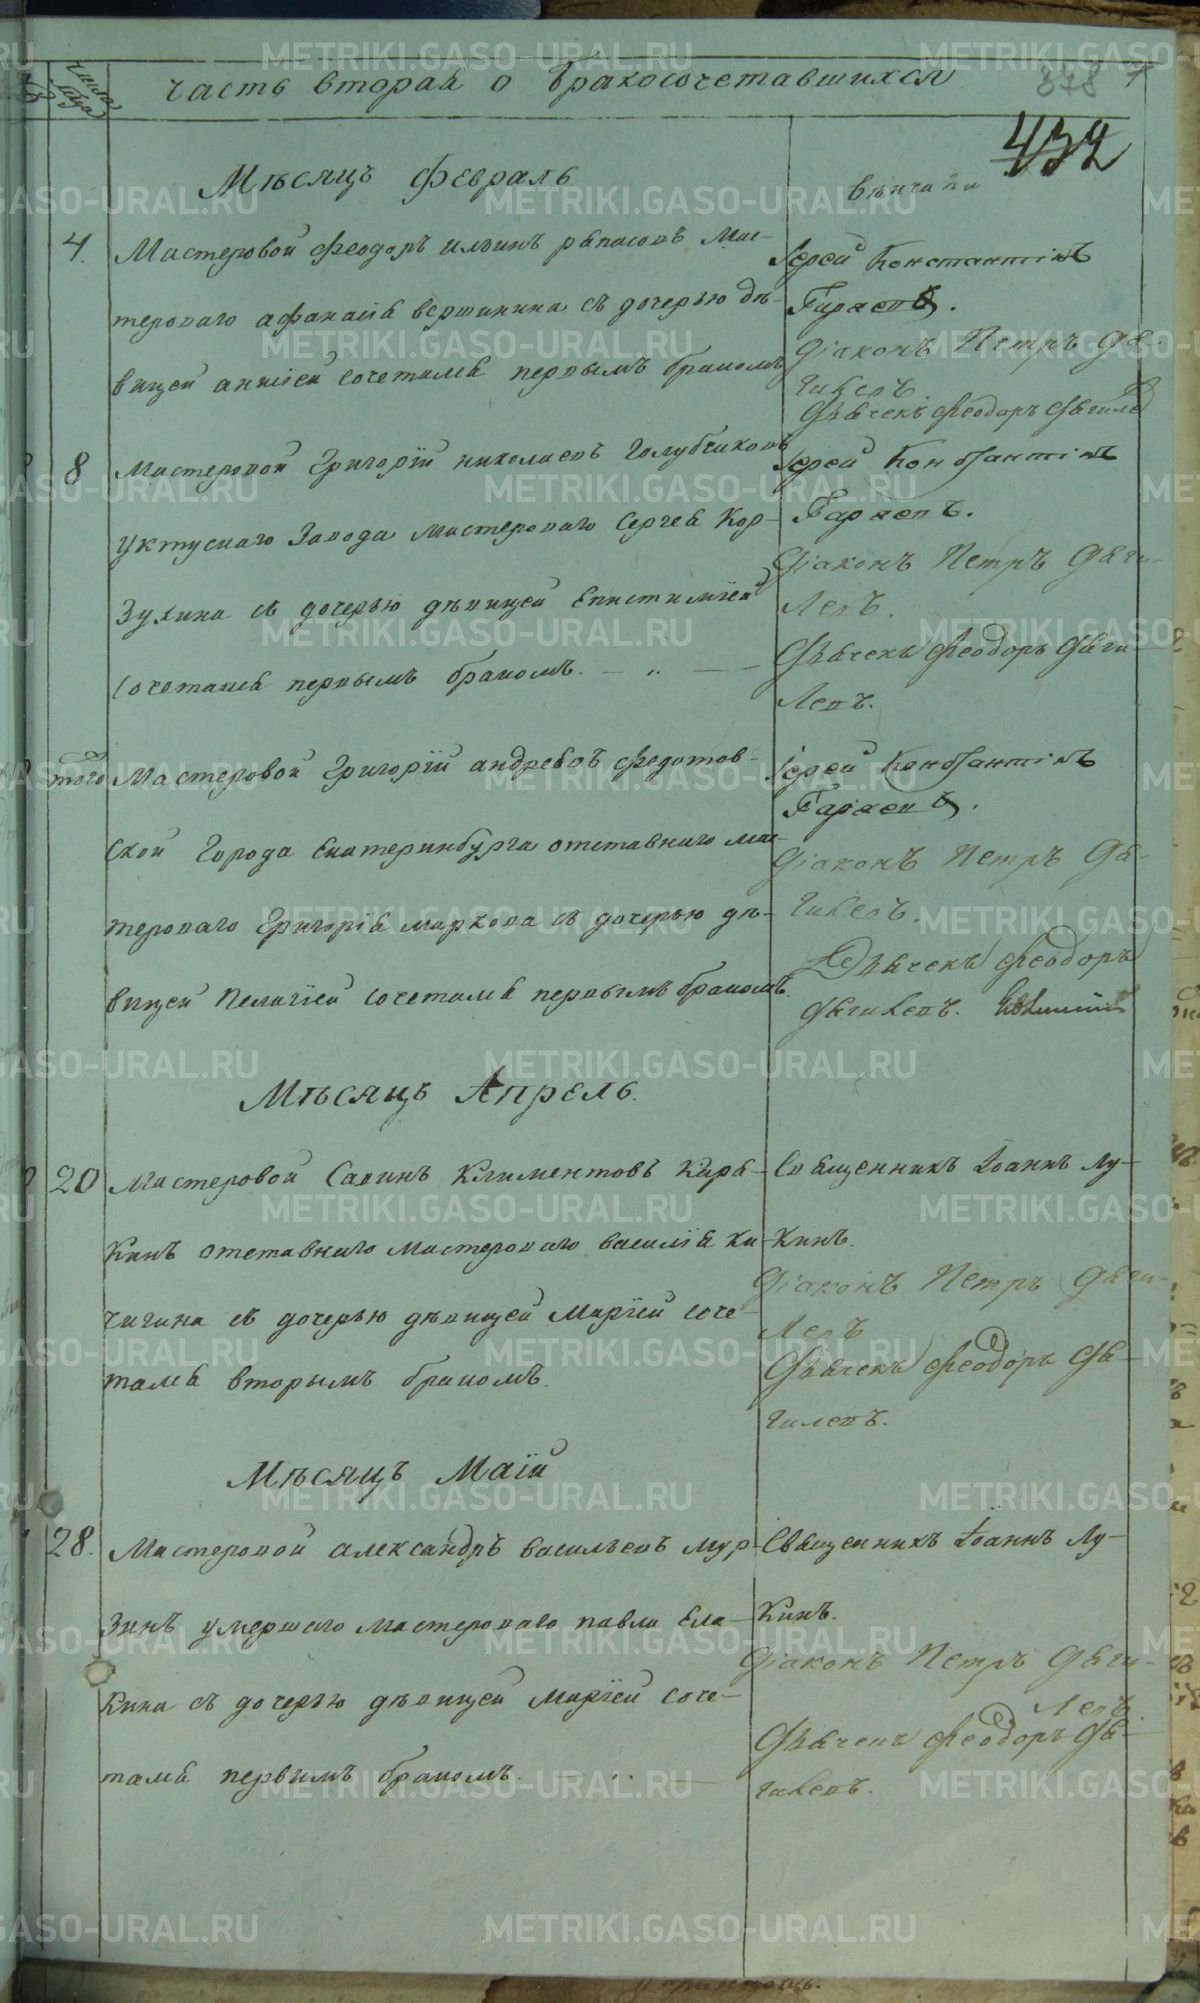 Числа мѣсяца
часть вторая о бракосочетавшихся
378
7
432
Мѣсяцъ Февраль
Вѣнчали
4. Мастеровой Феодоръ Ильинъ Мас-
тероваго Афанасія Вершинина съ дочерью дѣ-
вицей Аннїей сочетался первымъ бракомъ
Іерей Константинъ
Гаряевъ.
Діаконъ Петръ Дя-
гилевъ.
Дьячекъ Феодоръ Дягилев
8 Мастеровой Григорїй Николаевъ Голубчиковъ
Уктускаго Завода Мастероваго Сергея Кор-
Зухина съ дочерью дѣвицей Епистимїей
сочетался первымъ бракомъ. — „ — —
Іерей Константинъ
Гаряевъ.
Діаконъ Петръ Дяги-
левъ.
Дьячекъ Феодоръ Дяги-
левъ.
того Мастеровой Григорїй Андреевъ Федотов-
ской Города Екатеринбурга отставнаго мас-
тероваго Григорїя Маркова съ дочерью дѣ-
вицей Пелагїей сочетался первымъ бракомъ.
Іерей Константинъ
Гаряевъ.
Діаконъ Петръ Дя-
гилевъ.
Дьячекъ Феодоръ
Дягилевъ.
Мѣсяцъ Апрель.
20 Мастеровой Савинъ Климентовъ Каря-
Кинъ отставнаго Мастероваго Василїя Ки-
чигина съ дочерью дѣвицей Марїей соче-
тался вторымъ бракомъ.
Священникъ Іоаннъ Лу-
Кинъ.
Діаконъ Петръ Дяги-
левъ
Дьячекъ Феодоръ Дя-
гилевъ.
Мѣсяцъ Маїй
28. Мастеровой Александръ Васильевъ Мур-
Зинъ умершаго Мастероваго Павла Ела-
Кина съ дочерью дѣвицей Марїей соче-
тался первымъ бракомъ. — „ —
Священникъ Іоаннъ Лу-
Кинъ.
Діаконъ Петръ Дяги-
левъ.
Дьячекъ Феодоръ Дя-
гилевъ.
METRIKI.GASO-URAL.RU